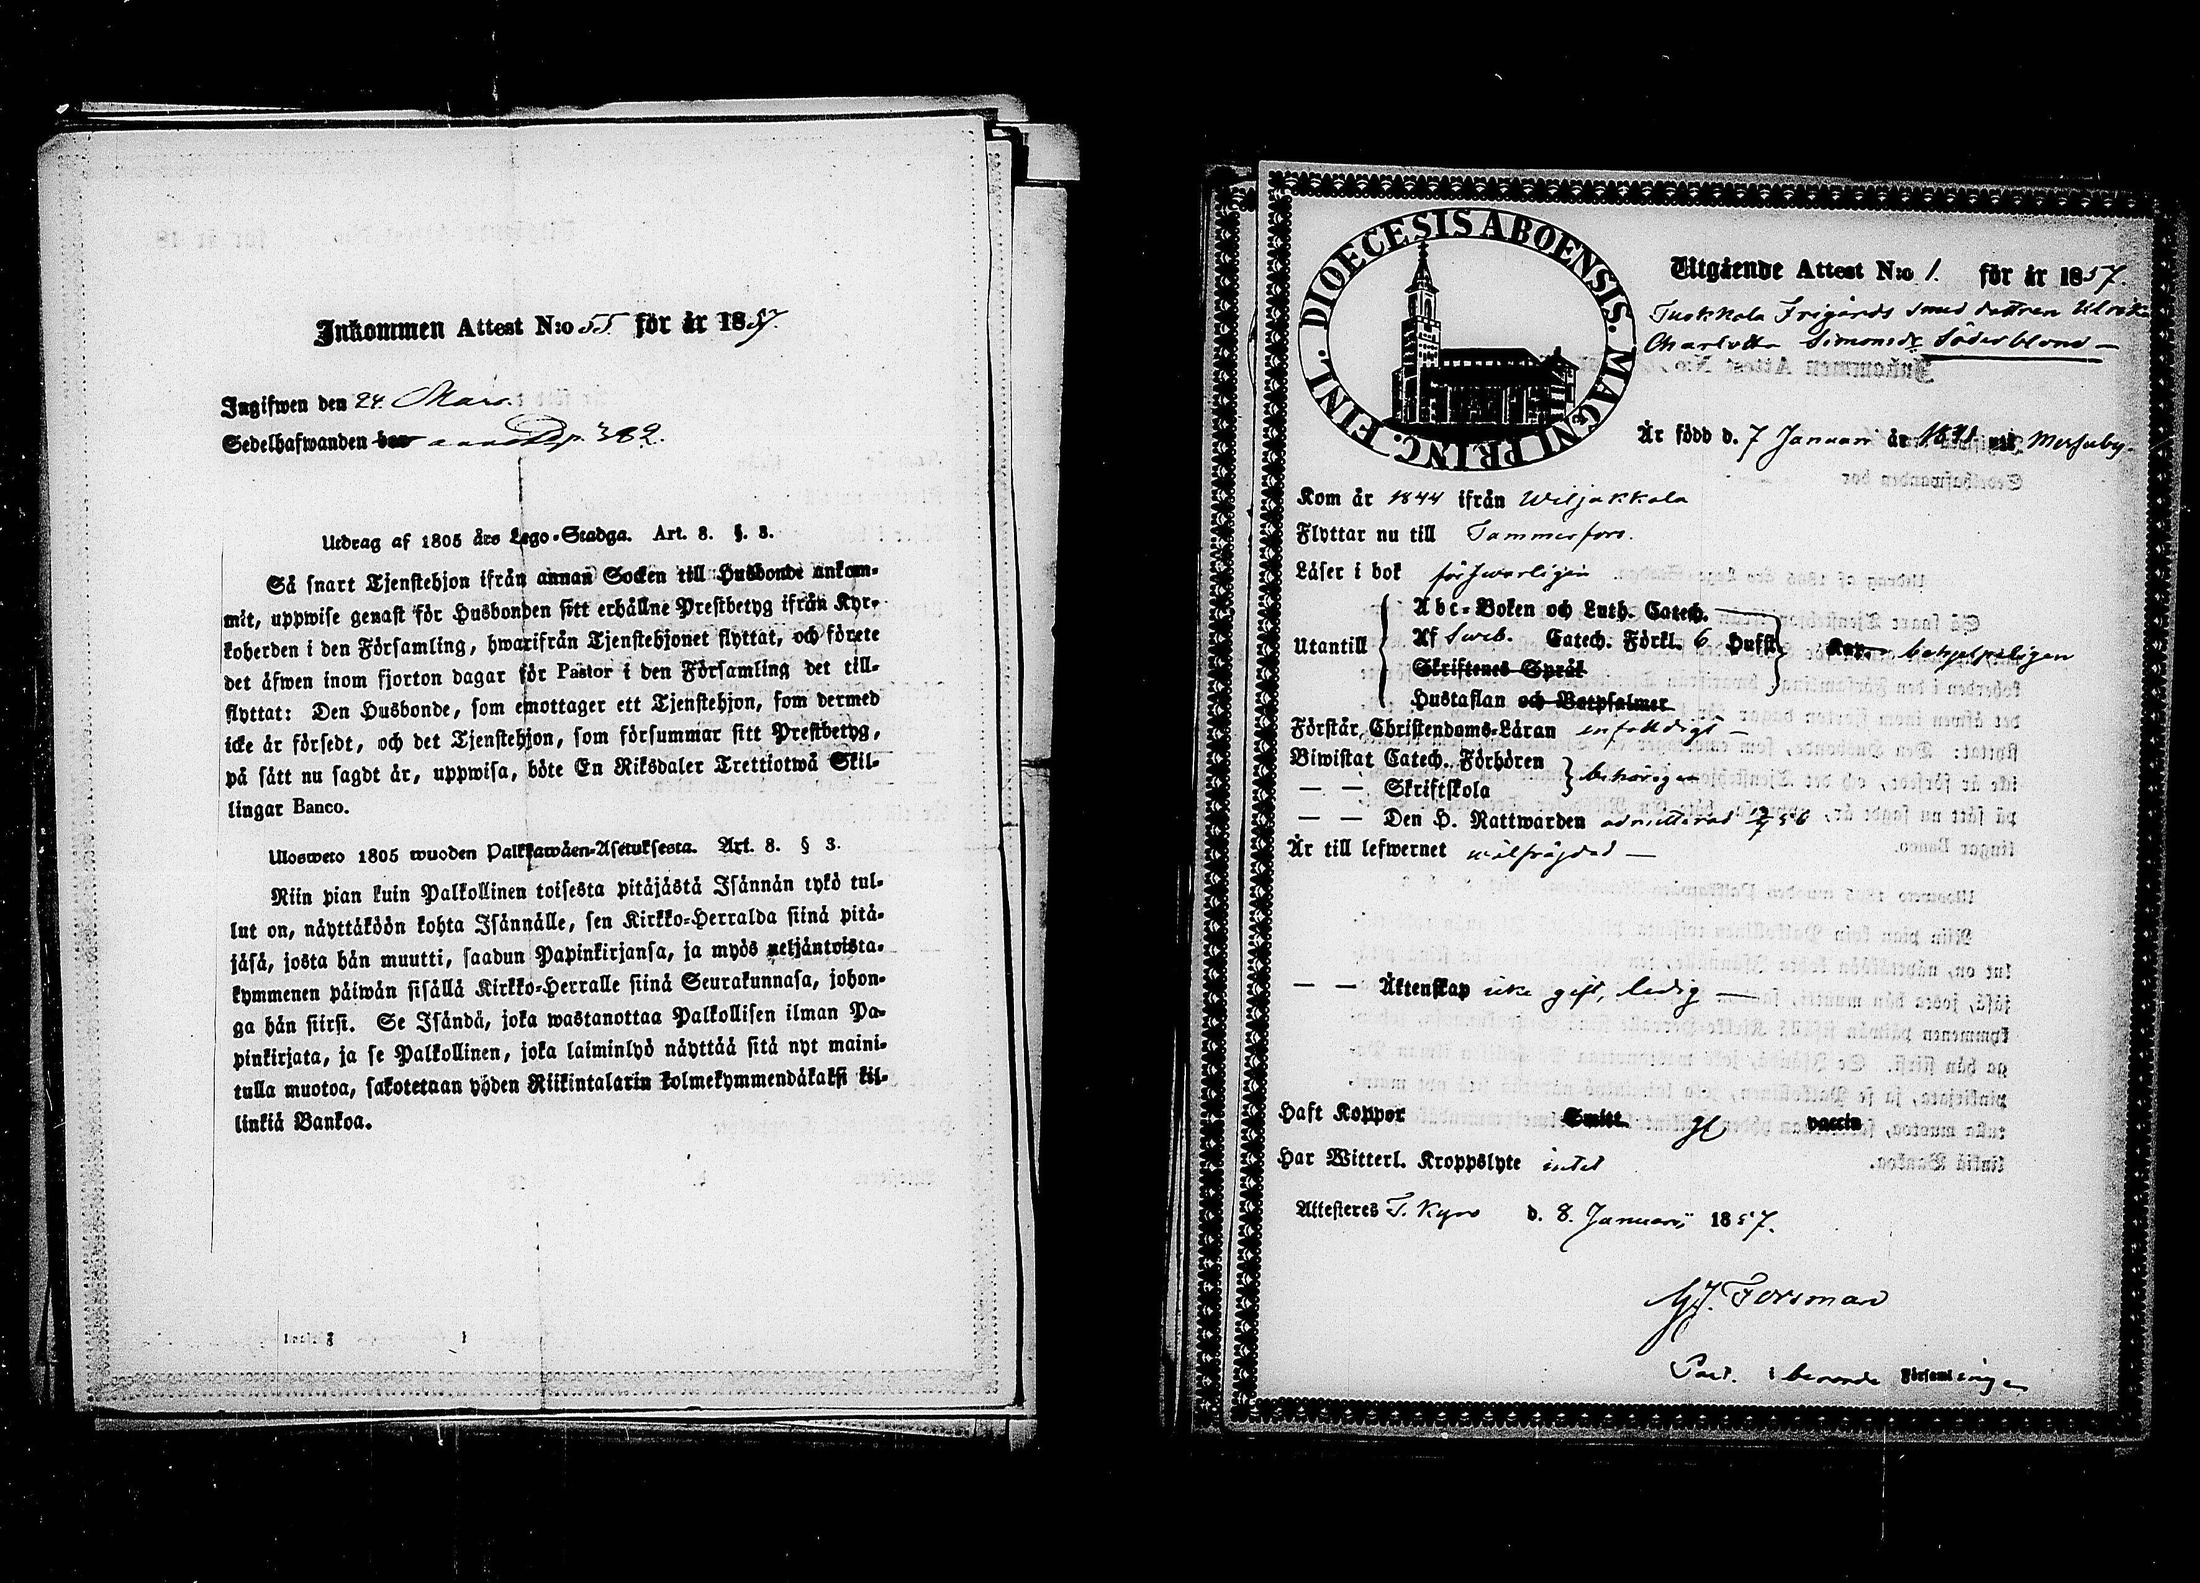 Inkommen Attest N:o 55 för år 1857.
Ingifwen den 24. Mars.
Sedelhafwanden bor annot. p. 382.
Utdrag af 1805 års Lego-Stadga. Art. 8. §. 3.
Så snart Tjenstehjon ifrån annan Socken till Husbonde ankom-
mit, uppwise genast för Husbonden sitt erhållne Prestbetyg ifrån Kyr-
koherden i den Församling, hwarifrån Tjenstehjonet flyttat, och förete
det äfwen inom fjorton dagar för Pastor i den Församling det till-
flyttat: Den Husbonde, som emottager ett Tjenstehjon, som dermed
icke är försedt, och det Tjenstehjon, som försummar sitt Prestbetyg,
på sätt nu sagdt är, uppwisa, böte En Riksdaler Trettiotwå Skil-
lingar Banco.
Ulosweto 1805 wuoden Palkkawäen-Asetuksesta. Art. 8. § 3.
Niin pian kuin Palkollinen toisesta pitäjästä Isännän tykö tul-
lut on, näyttäköön kohta Isännälle, sen Kirkko-Herralda siinä pitä-
jäsä, josta hän muutti, saadun Papinkirjansa, ja myös neljäntoista-
kymmenen päiwän sisällä Kirkko-Herralle siinä Seurakunnasa, johon-
ga hän siirsi. Se Isändä, joka wastanottaa Palkollisen ilman Pa-
pinkirjata, ja se Palkollinen, joka laiminlyö näyttää sitä nyt maini-
tulla muotoa, sakotetaan yhden Riikintalarin kolmekymmendäkaksi kil-
linkiä Bankoa.
DIOECESIS ABOENSIS. MAGNI PRINC. FINL.
Utgående Attest N:o 1. för år 1857.
Tuokkola Frigårds smed dottren Ulrika
Charlotta Simonsdr Söderblom
Är född d. 7 Januari år 1841 uti
Kom år 1844 ifrån Wiljakkala
Flyttar nu till Tammerfors.
Läser i bok förswarligen
Utantill
Abc-Boken och Luth. Catech.
Af Sweb. Catech. Förkl. 6 Hufst. behjelpeligen
Skriftenes Språk
Hustaflan och Botpsalmer
Förstår Christendoms-Läran enfaldigt
Biwistat Catech. Förhören behörigen
— — Skriftskola
— — Den H. Nattwarden admitterad 56
Är till lefwernet wälfräjdad
— — Äktenskap icke gift, ledig
Haft Koppor Smitt gl vaccin
Har Witterl. Kroppslyte intet
Attesteres T. Kyro d. 8. Januarii 1857.
Forsman
Past. i berörde Församlingen